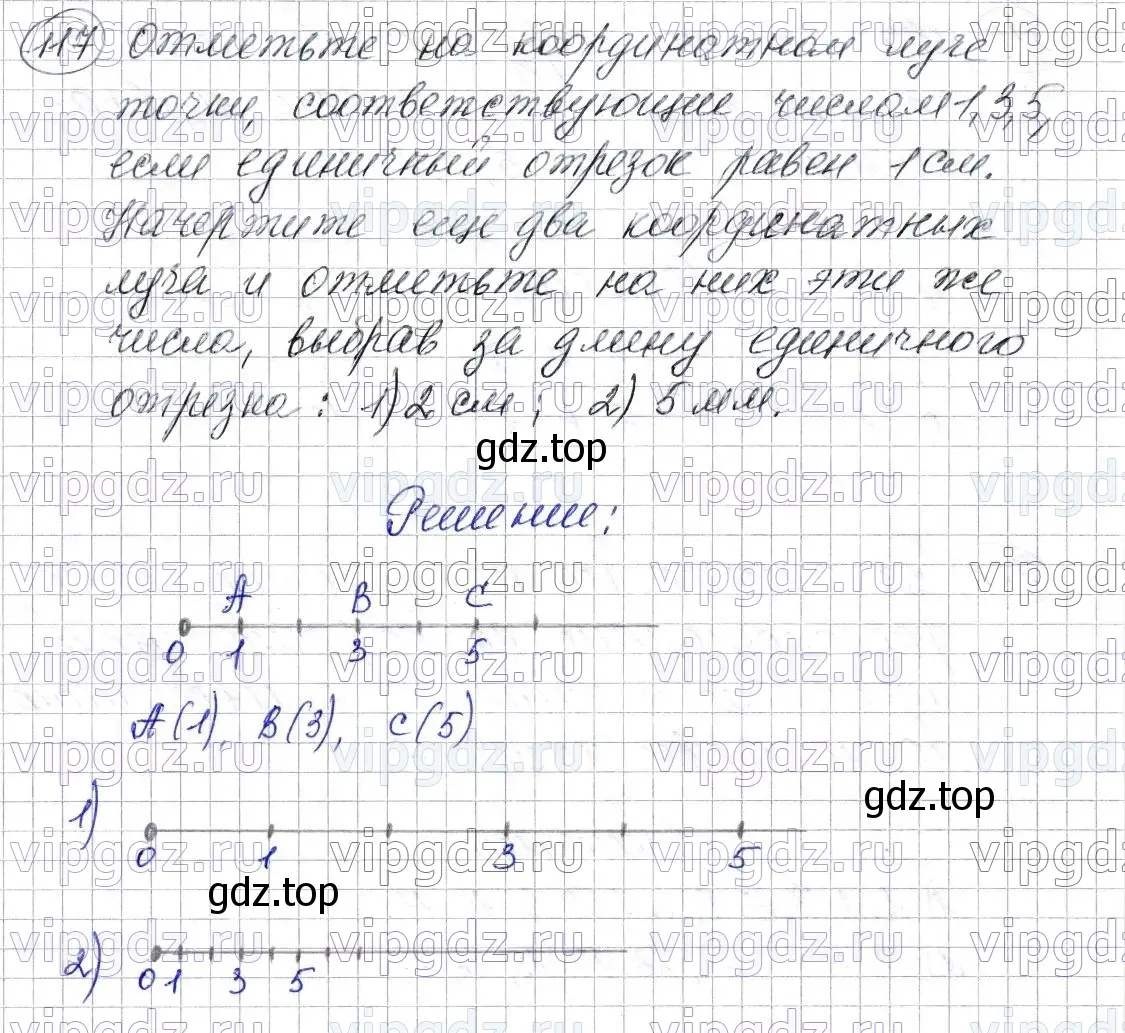 117 Отметьте на координатном луче
точки, соответствующие числам 1, 3, 5,
если единичный отрезок равен 1 см.
Начертите еще два координатных
луча и отметьте на них эти же
числа, выбрав за длину единичного
отрезка: 1) 2 см; 2) 5 мм.
gdz.top
Решение:
A B C
0 1 3 5
A(1), B(3), C(5)
gdz.top
1)
0 1 3 5
gdz.top
2)
0 1 3 5
vipgdz.ru